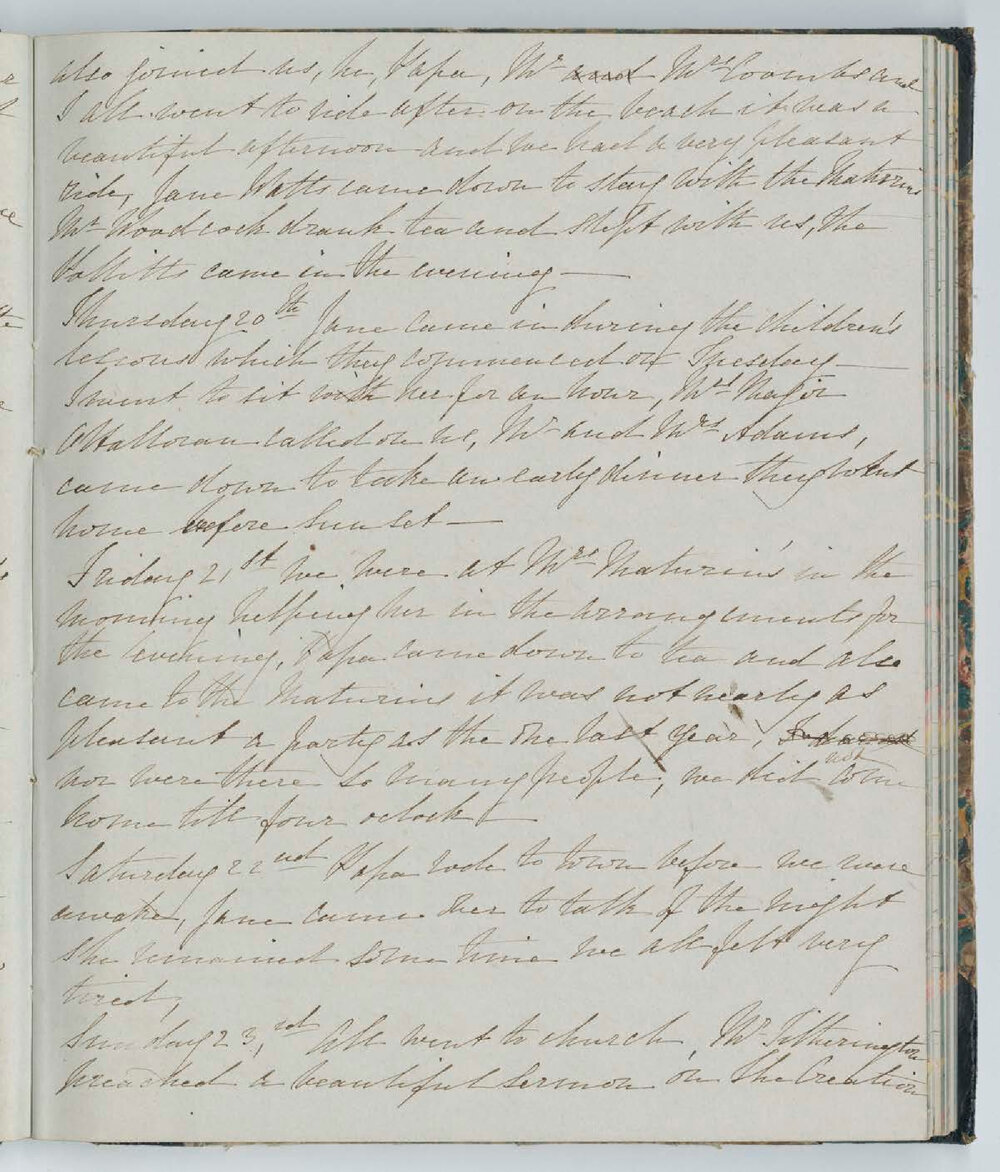 also joined us, he, Papa, Mr and Mrs Coombs and
I all went to ride after on the beach it was a
beautiful afternoon and we had a very pleasant
ride, Jane Watts came down to stay with the Maturins
Mr Woodcock drank tea and slept with us, the
came in the evening —
Thursday 20th Jane came in during the children's
lessons which they commenced on Tuesday —
I went to sit with her for an hour, Mrs Major
O'Halloran called on us, Mr and Mrs Adams,
came down to take an early dinner they went
home before sunset —
Friday 21st we were at Mrs Maturin's in the
morning helping her in the arrangements for
the evening, Papa came down to tea and also
came to the Maturins it was not nearly as
pleasant a party as the one last year,
nor were there so many people, we did not come
home till four oclock —
Saturday 22nd Papa rode to town before we were
awake, Jane came over to talk of the night
she remained some time we all felt very
tired,
Sunday 23,rd All went to church, Mr Titherington
preached a beautiful sermon on the Creation